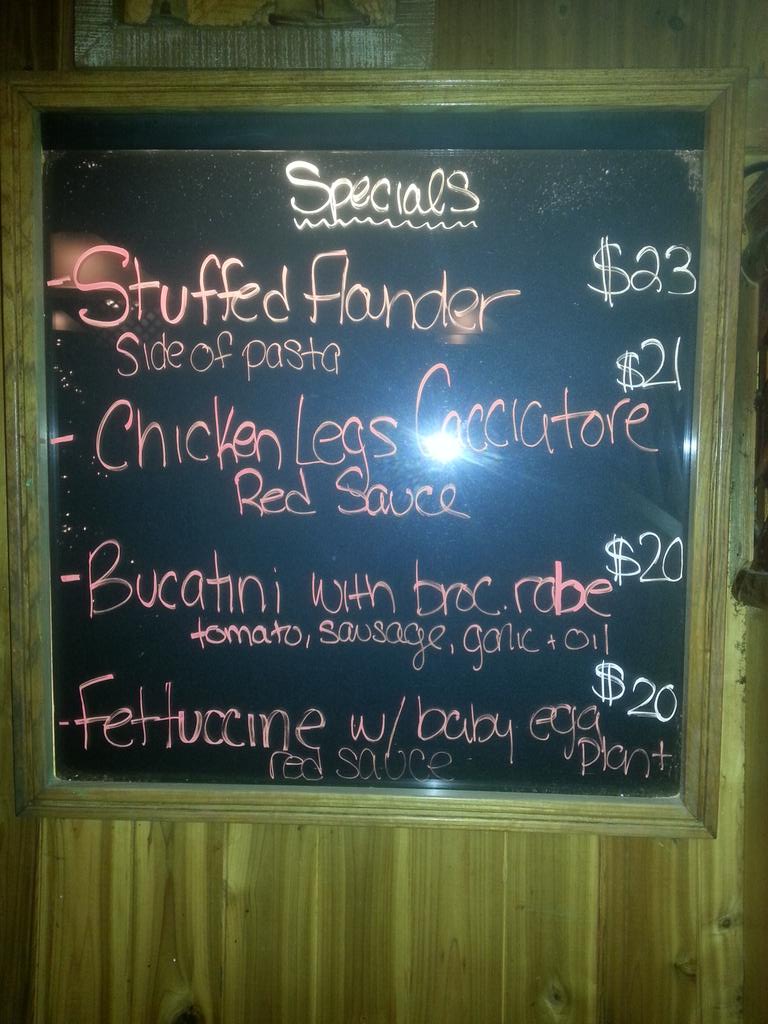 Specials
- Stuffed Flounder $23
Side of pasta
- Chicken Legs Cacciatore $21
Red Sauce
- Bucatini with broc. rabe $20
tomato, sausage, garlic + oil
- Fettuccine w/ baby egg $20
plant
red sauce